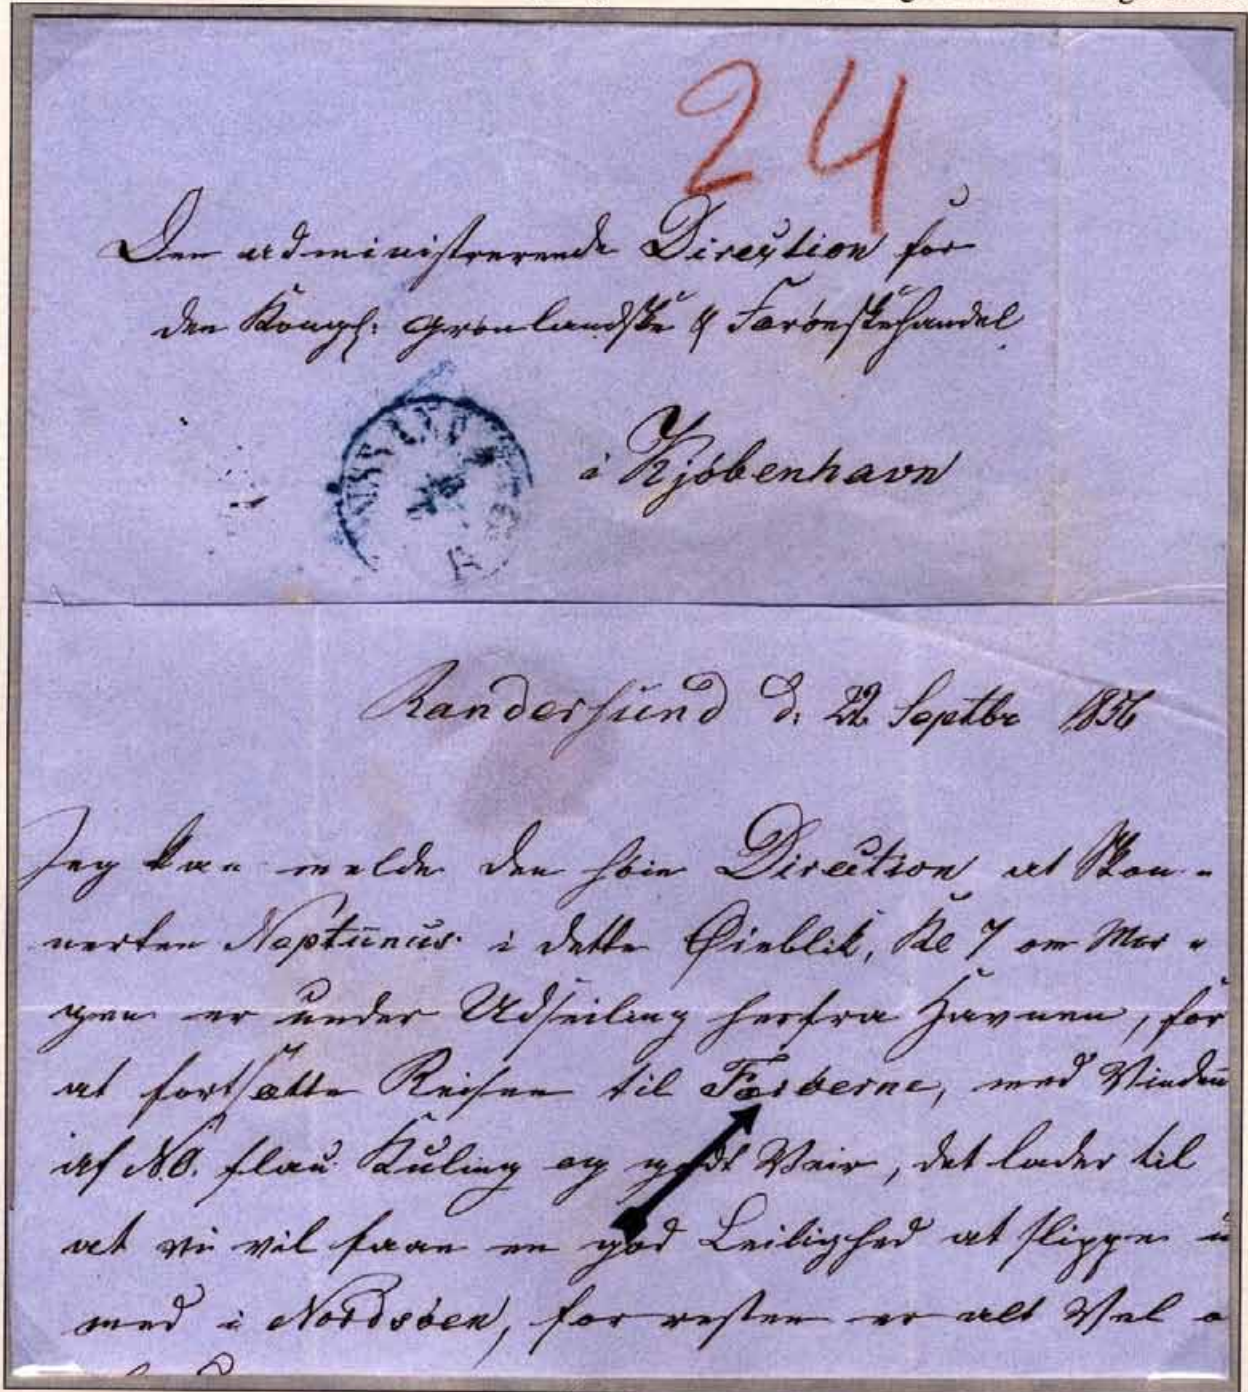 24
Den administrerende Direction for
den Kongl: Grönlandske & Færöeske Handel
i Kjöbenhavn
Randersund d: 22 Septbr 1856
Jeg kan melde den höie Direction at Skon-
nerten Neptunus i dette Øieblik, Kl 7 om Mor-
gen er under Udseiling herfra Havnen, for
at fortsætte Reisen til Færöerne, med Vinden
af N.O. flau Kuling og godt Veir, det lader til
at vi vil faae en god Leilighed at slippe
med i Nordsöen, forresten er alt Vel